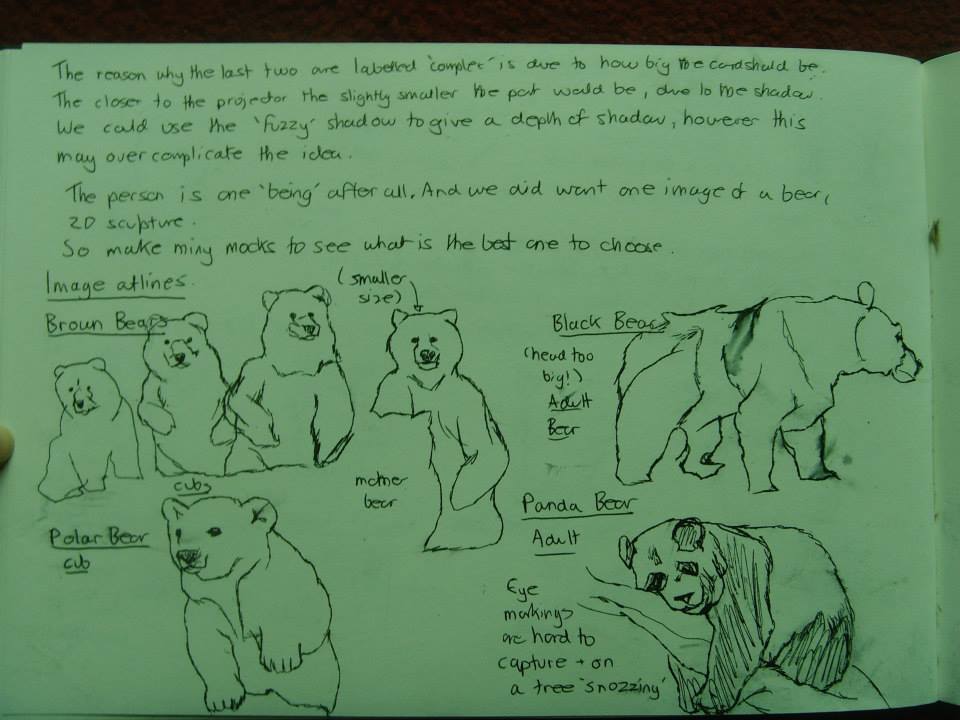 The reason why the last two are labelled 'complex' is due to how big the card should be.
The closer to the projector the slightly smaller the part would be, due to the shadow.
We could use the 'fuzzy' shadow to give a depth of shadow, however this
may over complicate the idea.
The person is one 'being' after all. And we did want one image of a bear,
2D sculpture.
So make miny mocks to see what is the best one to choose.
Image outlines.
(smaller
size)
Brown Bears
cubs
mother
bear
Black Bears
(head too
big!)
Adult
Bear
Polar Bear
cub
Panda Bear
Adult
Eye
markings
are hard to
capture + on
a tree 'snozzing'